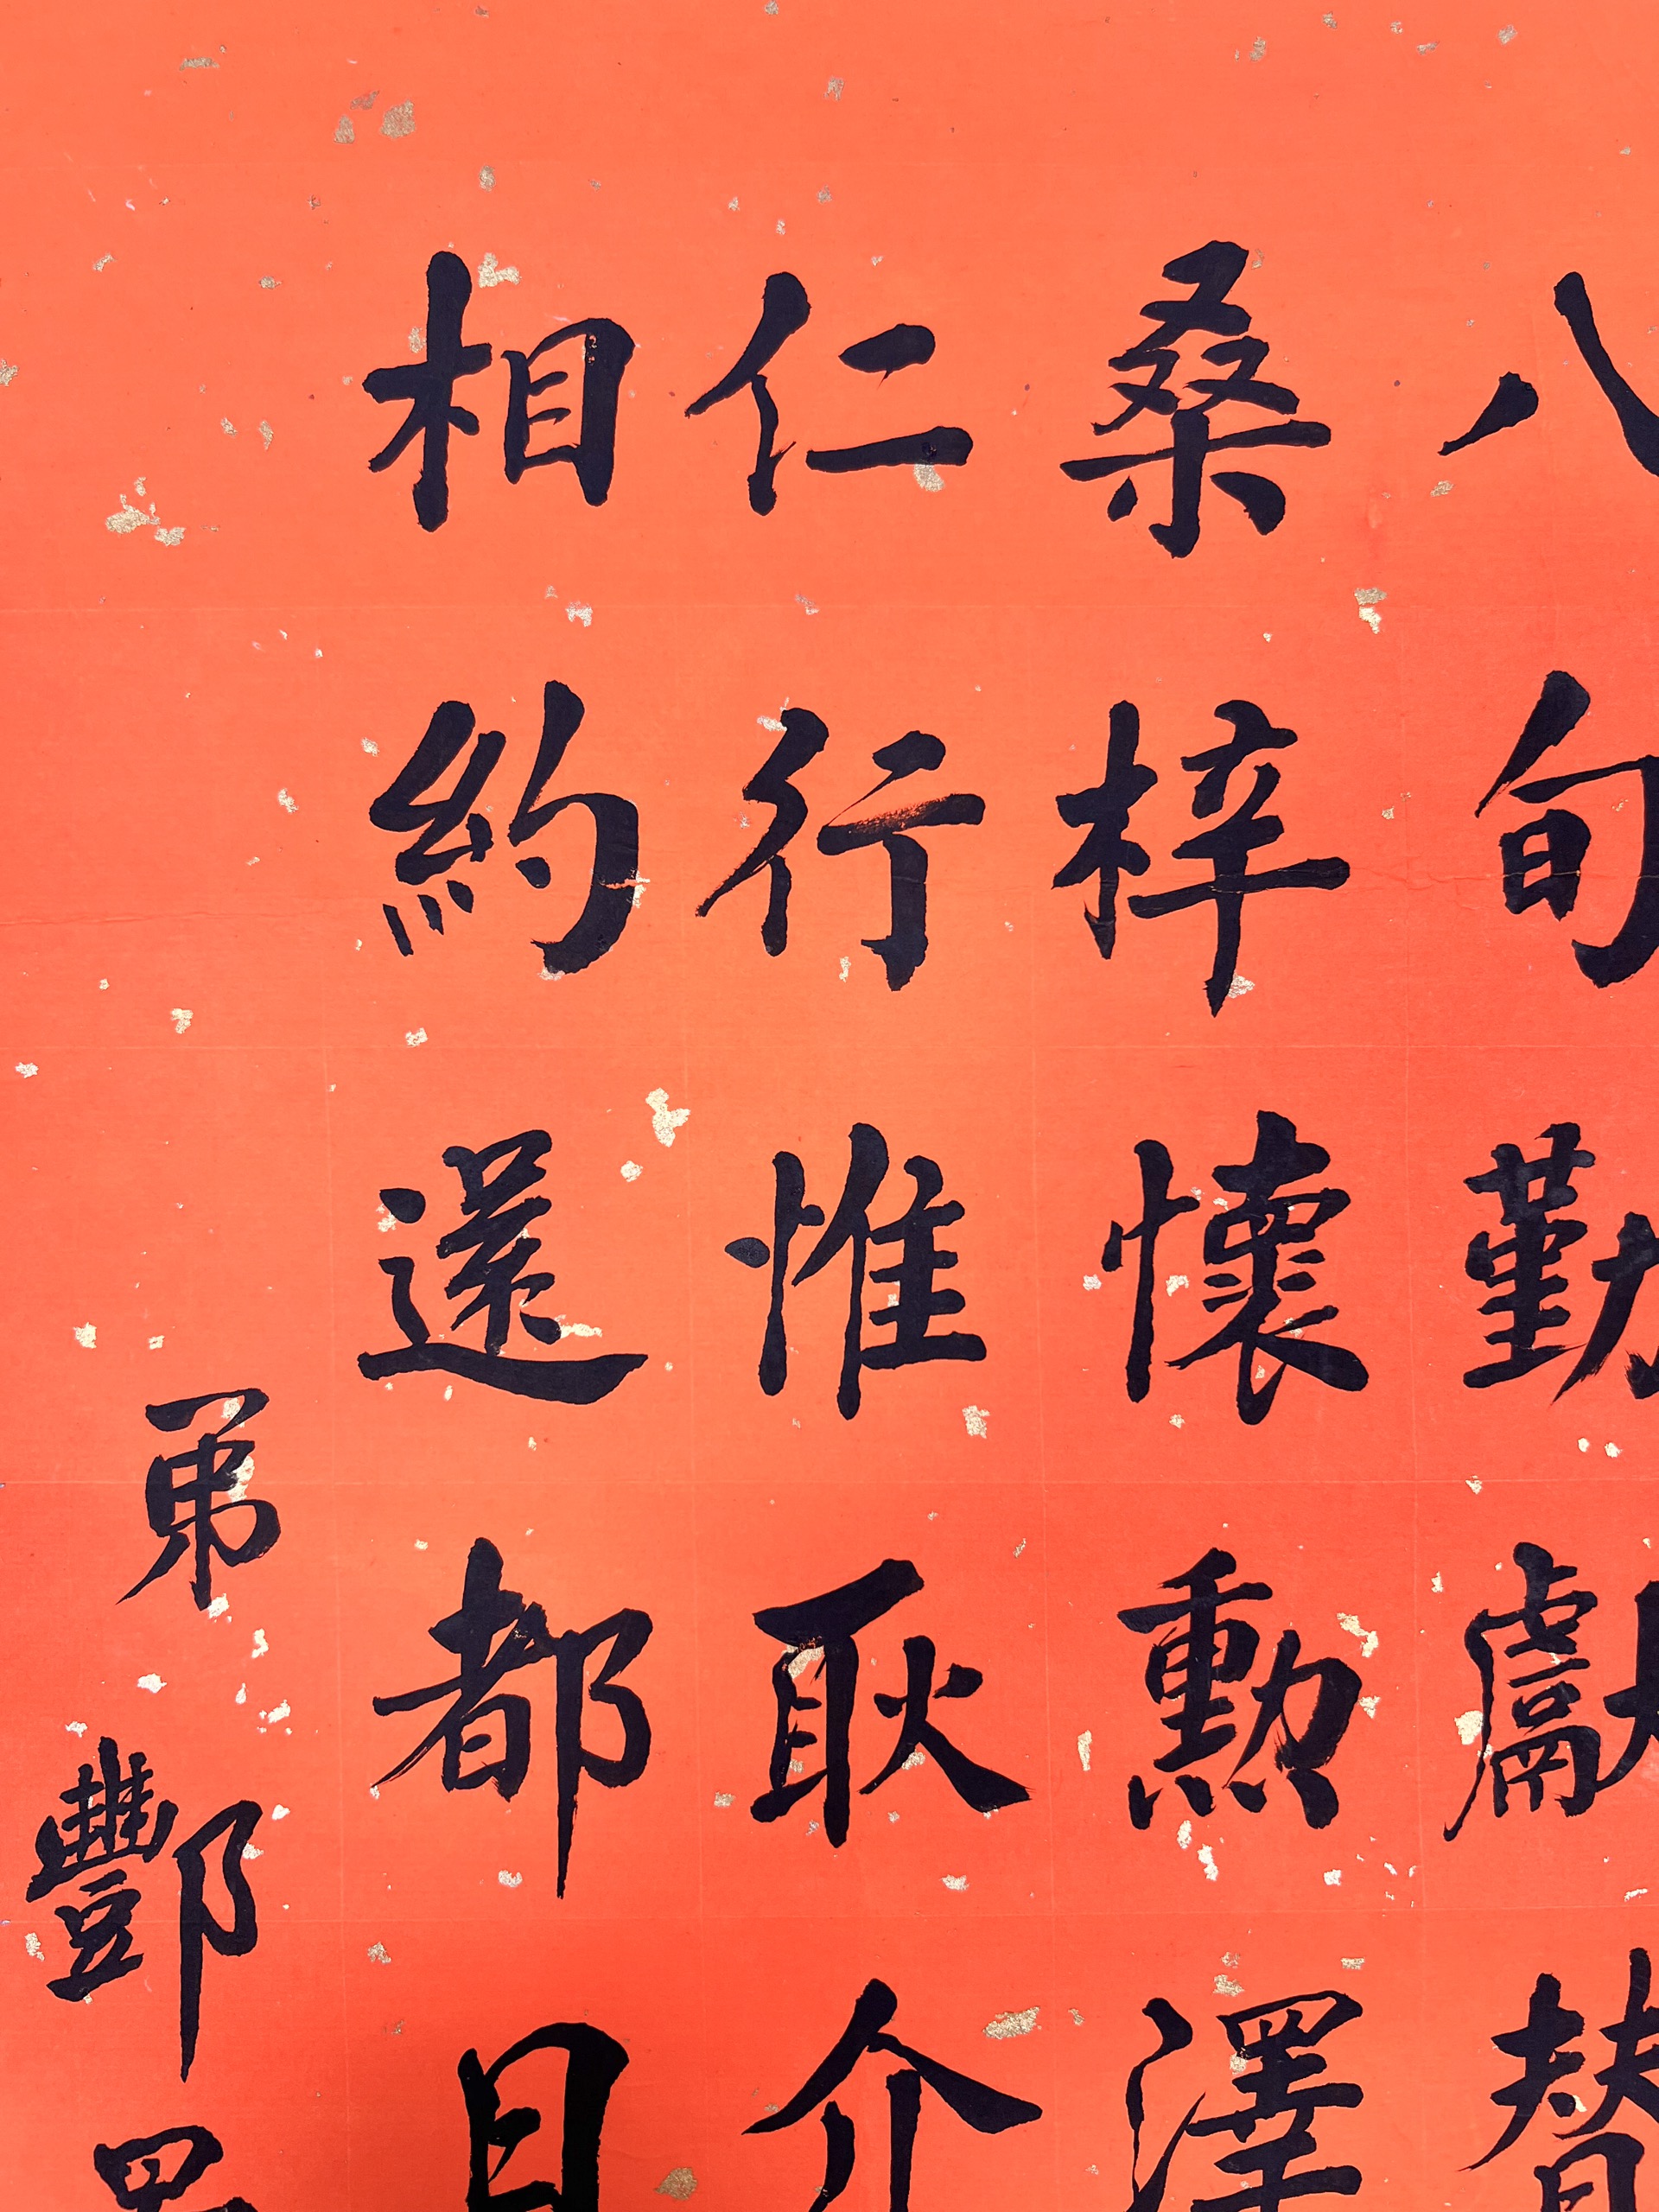 八旬勤獻替
桑梓懷勳澤
仁行惟耿介
相約還都日
弟酆